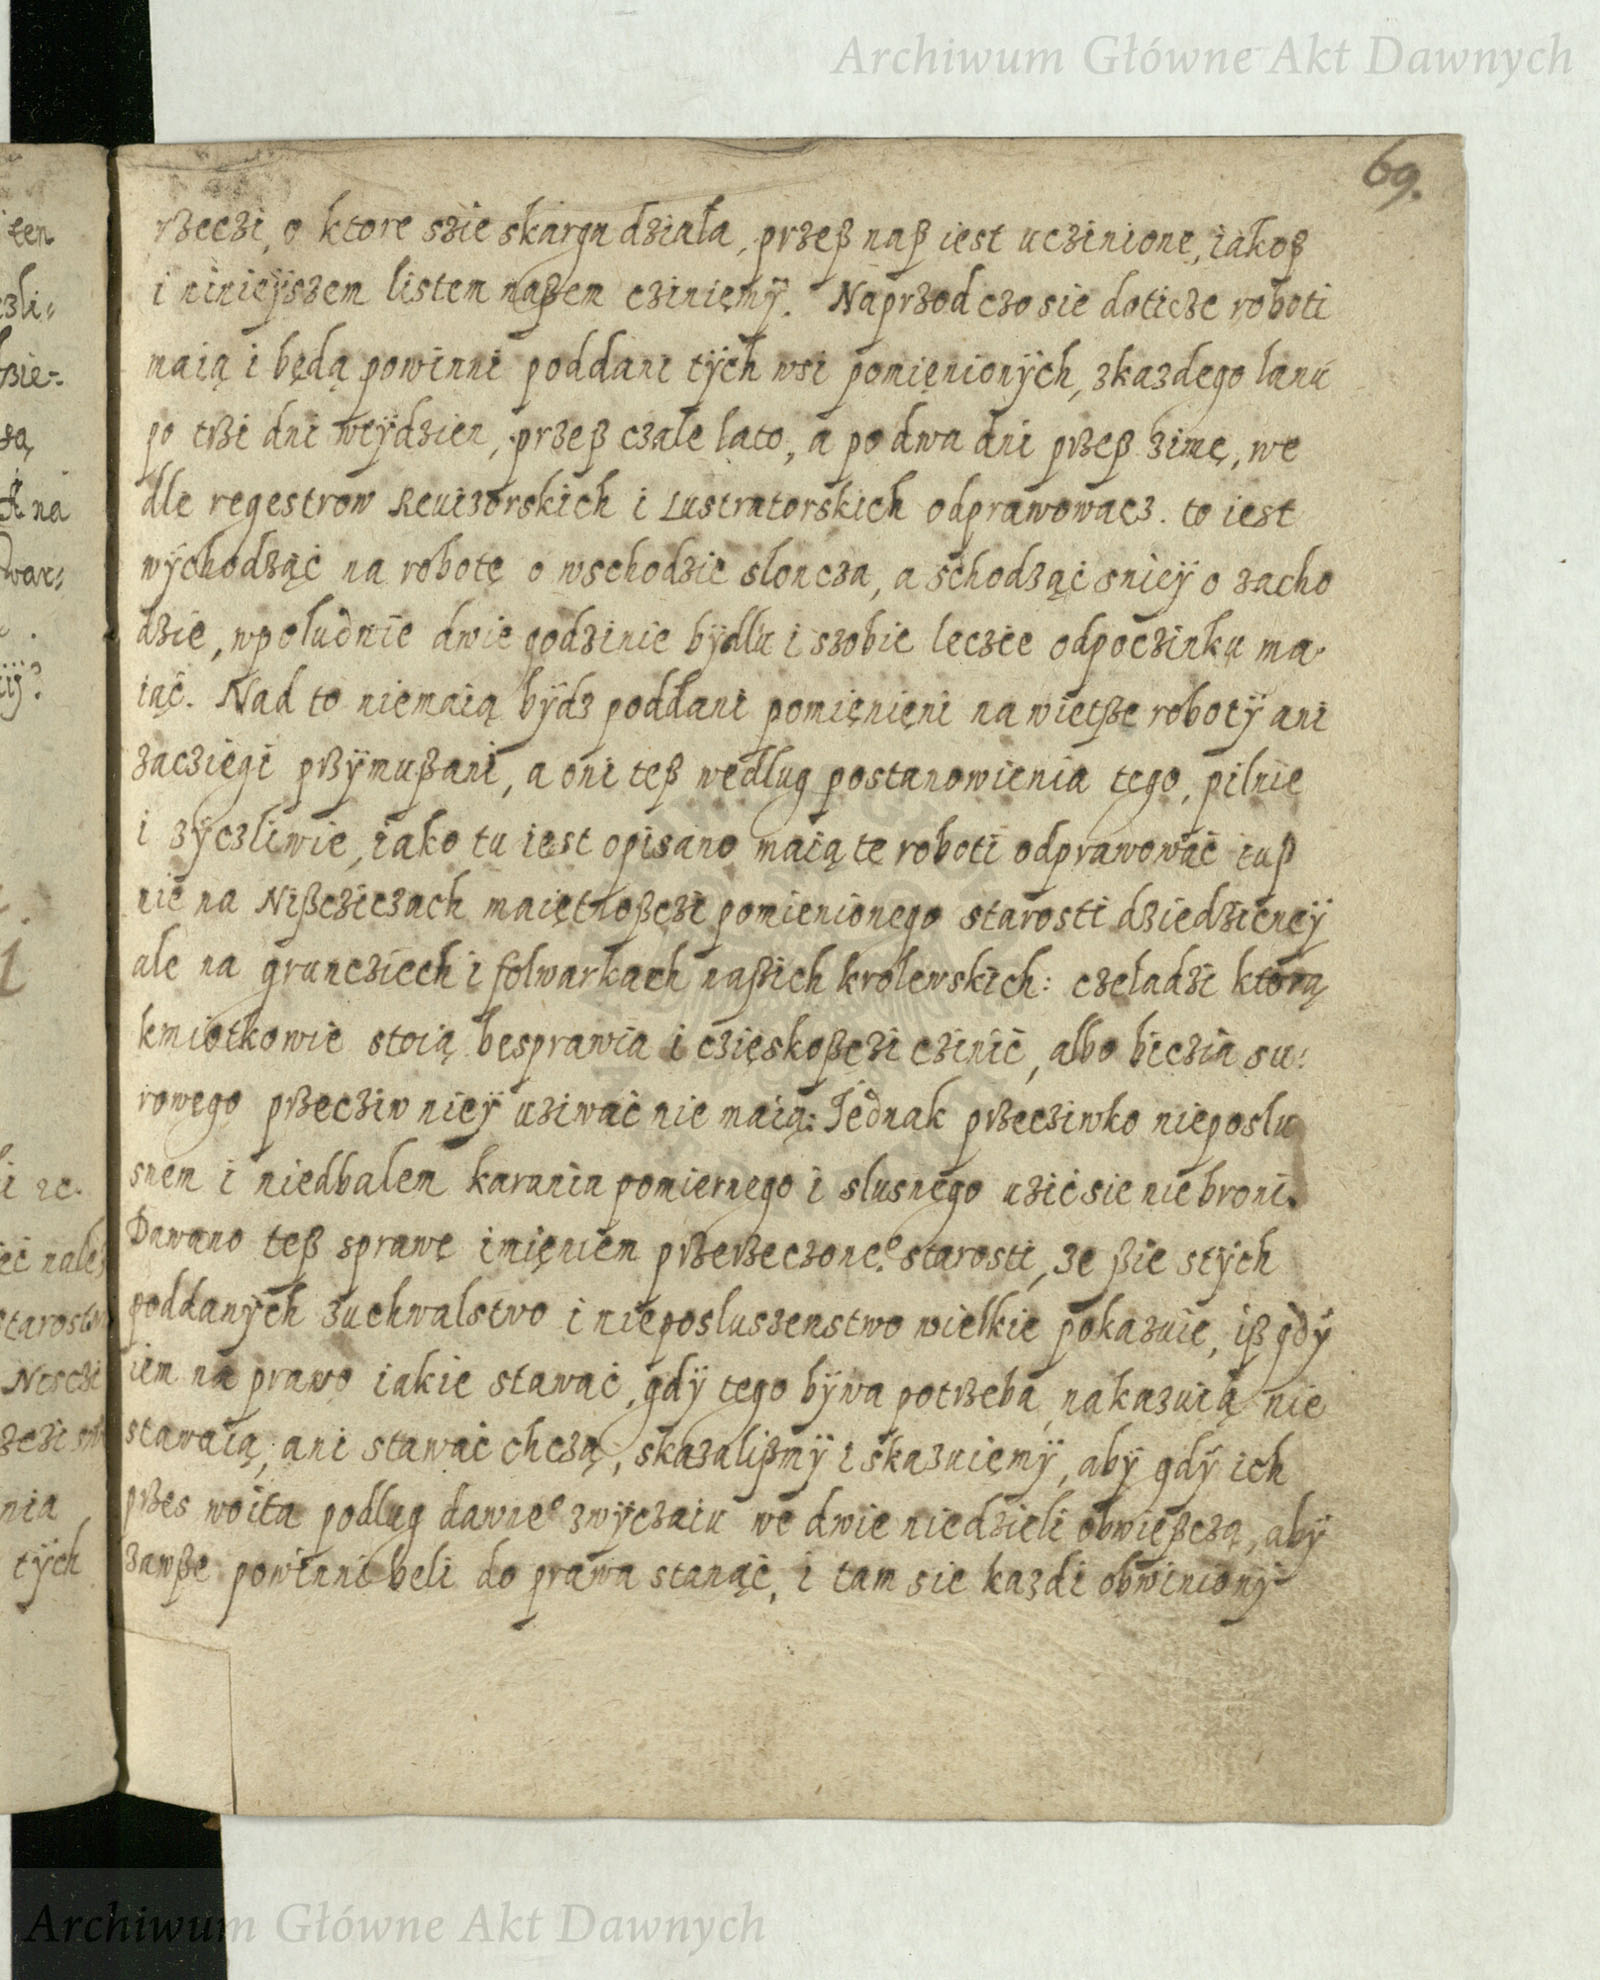 Archiwum Główne Akt Dawnych
69.
rzeczi, o ktore szie skarga działa, przeß naß iest uczinione, iakoß
i ninieÿszem listem naßem cziniemÿ. Naprzod czo sie doticze roboti
maią i będą powinni poddani tÿch wsi pomięnionÿch, zkazdego lanu
po trzi dni weÿdzien, przeß czałe lato, a po dwa dni przeß zimę, we
dle regestrow Reuizorskich i Lustratorskich odprawowacz. to iest
wÿchodząć na robotę o wschodzie słoncza, a schodząć snieÿ o zacho
dzie, wpołudnie dwie godzinie bÿdłu i szobie leczie odpoczinku ma-
iąć. Nad to niemaią bÿdz poddani pomięnięni na wietße robotÿ ani
zacziegi przÿmußani, a oni teß według postanowienia tego, pilnie
i zÿczliwie, iako tu iest opisano maią te roboti odprawować iuß
nie na Nißcziczach maiętnoßczi pomienionego starosti dziedziczneÿ
ale na grunciech i folwarkach naßich krolewskich: czeladzi ktorą
kmiotkowie stoią besprawia i czięskoßczi czinić, albo biczia su:
rowego przecziw nieÿ uziwać nie maią: Jednak przecziwko nieposlu
snem i niedbalem karania pomiernego i slusnego uzić sie nie broni.
Dawano teß sprawę imięniem przerzeczone.º starosti, ze ßie stÿch
poddanÿch zuchwalstwo i nieposluszenstwo wielkie pokazuie, iß gdÿ
iem na prawo iakie stawać, gdÿ tego bÿwa potrzeba, nakazuią nie
stawaią, ani stawać chczą, skazalißmÿ i skazuięmÿ, abÿ gdÿ ich
przes woita podlug dawneº zwÿczaiu we dwie niedzieli obwießczą, abÿ
zawße powinni beli do prawa stanąć, i tam sie kazdi obwinionÿ
Archiwum Główne Akt Dawnych